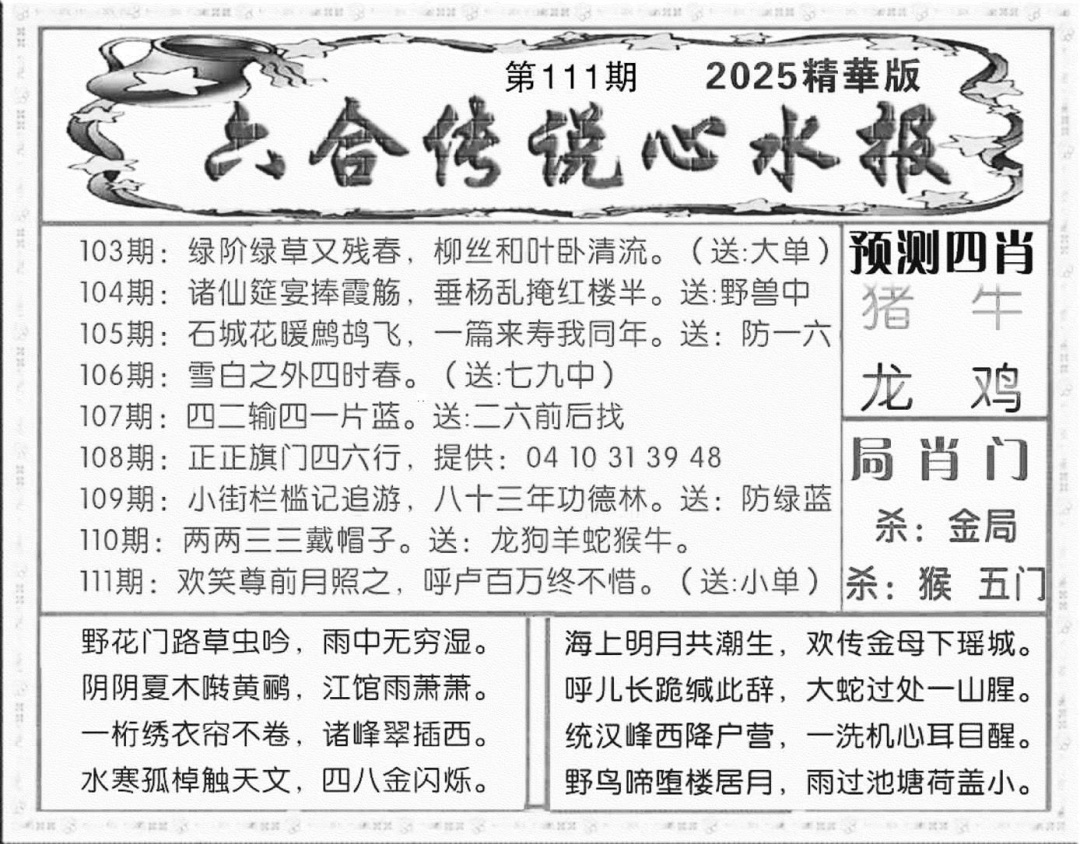 第111期 2025精華版
六合传说心水报
103期：绿阶绿草又残春，柳丝和叶卧清流。（送:大单）
104期：诸仙筵宴捧霞觞，垂杨乱掩红楼半。送:野兽中
105期：石城花暖鹧鸪飞，一篇来寿我同年。送：防一六
106期：雪白之外四时春。（送:七九中）
107期：四二输四一片蓝。送:二六前后找
108期：正正旗门四六行，提供：04 10 31 39 48
109期：小街栏槛记追游，八十三年功德林。送：防绿蓝
110期：两两三三戴帽子。送：龙狗羊蛇猴牛。
111期：欢笑尊前月照之，呼卢百万终不惜。（送:小单）
预测四肖
猪 牛
龙 鸡
局肖门
杀：金局
杀：猴 五门
野花门路草虫吟，雨中无穷湿。
阴阴夏木啭黄鹂，江馆雨萧萧。
一桁绣衣帘不卷，诸峰翠插西。
水寒孤棹触天文，四八金闪烁。
海上明月共潮生，欢传金母下瑶城。
呼儿长跪缄此辞，大蛇过处一山腥。
统汉峰西降户营，一洗机心耳目醒。
野鸟啼堕楼居月，雨过池塘荷盖小。